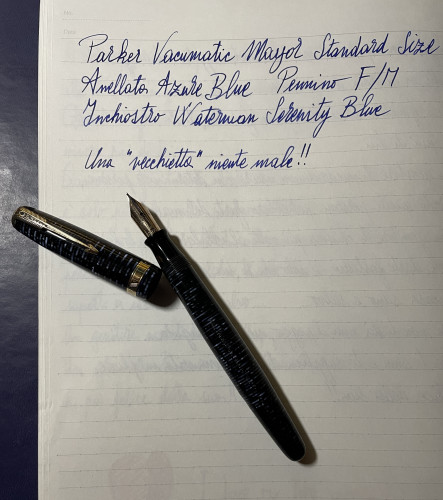 Parker Vacumatic Mayor Standard Size
Anellata Azure Blue Pennino F/M
Inchiostro Waterman Serenity Blue
Una "vecchietta" niente male!!